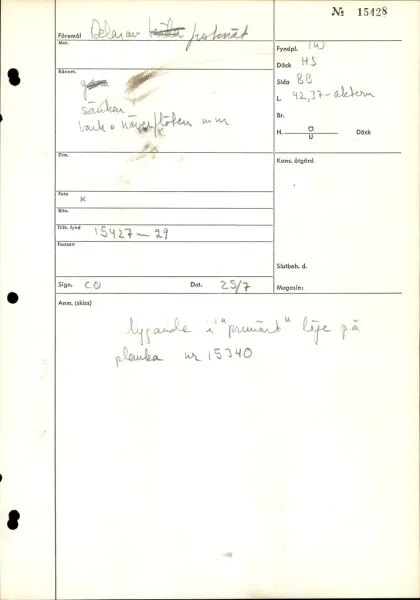 № 15428
Föremål Delar av fiskenät
Mat.
Fyndpl. IW
Däck HS
Sida BB
L. 42,37 - aktern
Br.
H. Ö U Däck
Kännet.
sänken
bark o näverflöten mm
Dim.
Kons. åtgärd
Foto x
Ritn.
Tillh. fynd 15427-29
Fastsatt
Slutbeh. d.
Sign. CO Dat. 25/7 Magasin:
Anm. (skiss)
liggande i "primärt" läge på
planka nr 15340